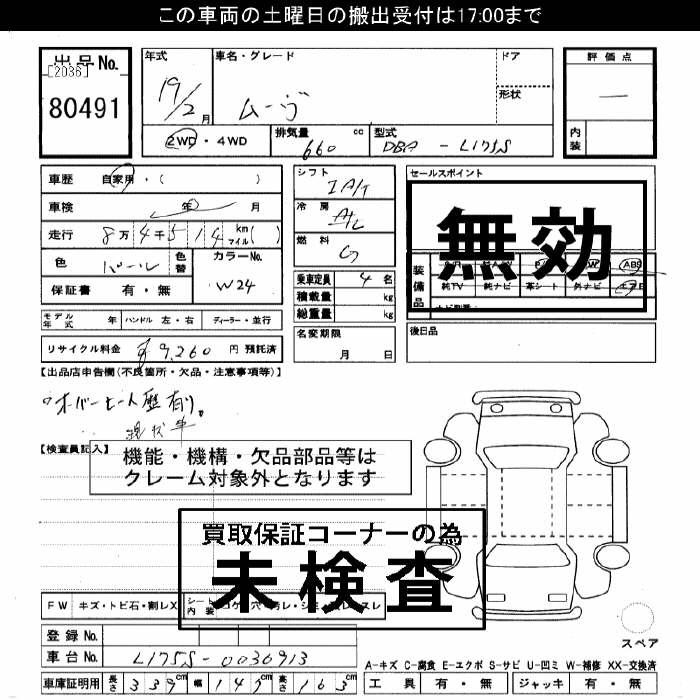 この車両の土曜日の搬出受付は17:00まで
出品No.
[2036]
80491
年式
19/2月
車名・グレード
ムーヴ
ドア
形状
評価点
―
内装
2WD・4WD
排気量 660 cc
型式 DBA - L175S
車歴 自家用・( )
車検 年 月
走行 8万4千514 km マイル( )
色 パール 色替
カラーNo. W24
保証書 有・無
シフト IA/T
冷房 A/C
燃料 G
乗車定員 4名
積載量 kg
総重量 kg
名変期限
月 日
セールスポイント
無効
装備品
ABS
純TV 純ナビ 革シート 外ナビ
後日品
モデル年式 年 ハンドル 左・右 ディーラー・並行
リサイクル料金 ¥9,260 円 預託済
【出品店申告欄(不良箇所・欠品・注意事項等)】
オーバーヒート歴有り。
現状車
【検査員記入】
機能・機構・欠品部品等は
クレーム対象外となります
買取保証コーナーの為
未検査
FW キズ・トビ石・割レX
シート内装
登録No.
車台No. L175S-0036913
車庫証明用 長さ 339cm 幅 147cm 高さ 163cm
スペア
A-キズ C-腐食 E-エクボ S-サビ U-凹ミ W-補修 XX-交換済
工具 有・無 ジャッキ 有・無